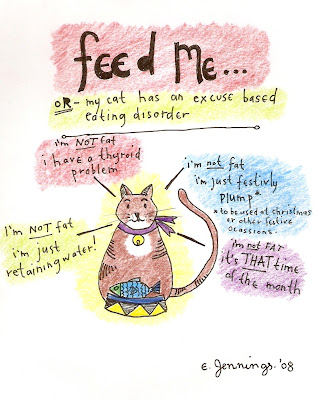 feed me...
OR - my cat has an excuse based
eating disorder
i'm NOT fat
i have a thyroid
problem
i'm not fat
i'm just festivly
plump*
* to be used at christmas
or other festive
ocassions.
I'm NOT fat
i'm just
retaining water!
i'm not FAT
it's THAT time
of the month
E. Jennings. '08